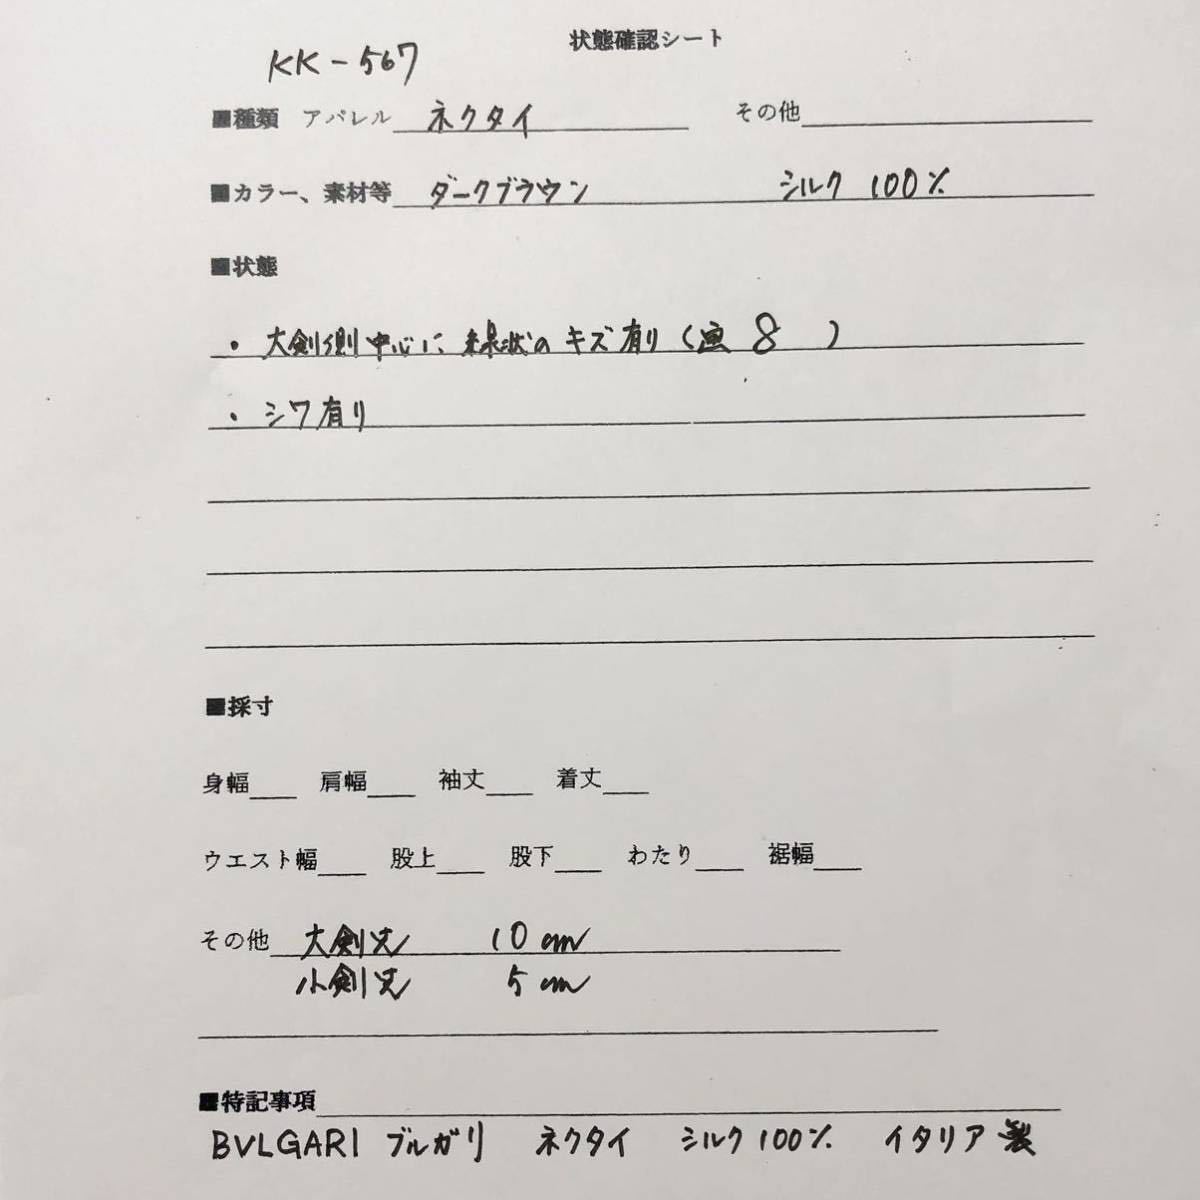 状態確認シート
KK-567
■種類 アパレル ネクタイ その他
■カラー、素材等 ダークブラウン シルク 100%
■状態
・大剣側中心に線状のキズ有り( 8 )
・シワ有り
■採寸
身幅 肩幅 袖丈 着丈
ウエスト幅 股上 股下 わたり 裾幅
その他 大剣先 10cm
小剣先 5cm
■特記事項
BVLGARI ブルガリ ネクタイ シルク100% イタリア製